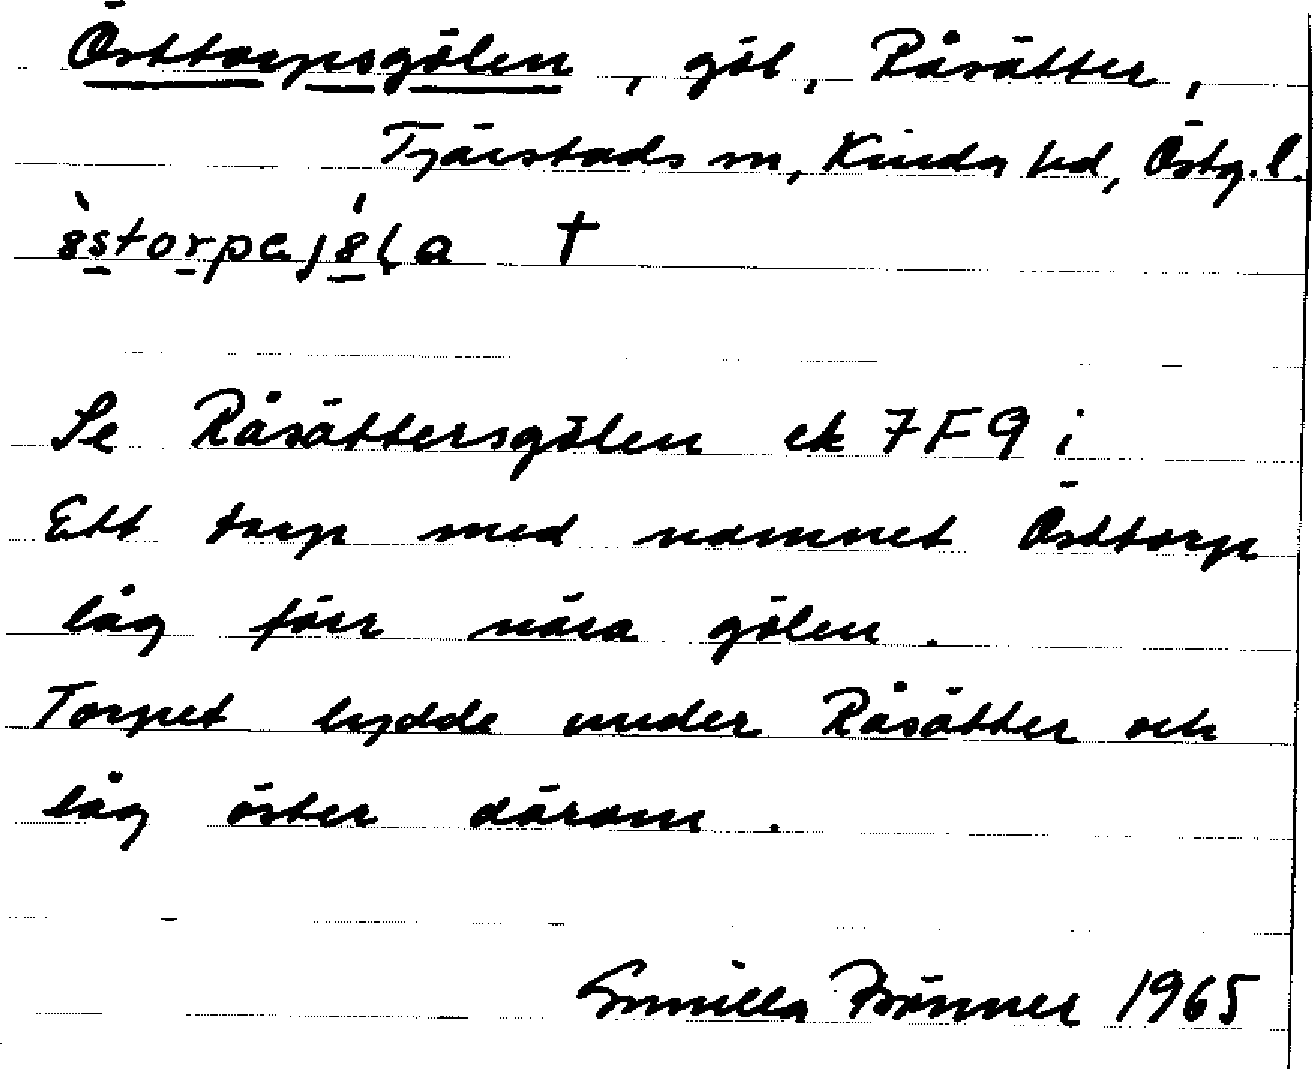 Östtorpsgölen, göl, Råsätter,
Tjärstads sn, Kinda hd, Östg.l.
Se Råsättersgölen ek 7F9i
Ett torp med namnet Östtorp
låg förr nära gölen.
Torpet lydde under Råsätter och
låg öster därom.
Gunilla 1965